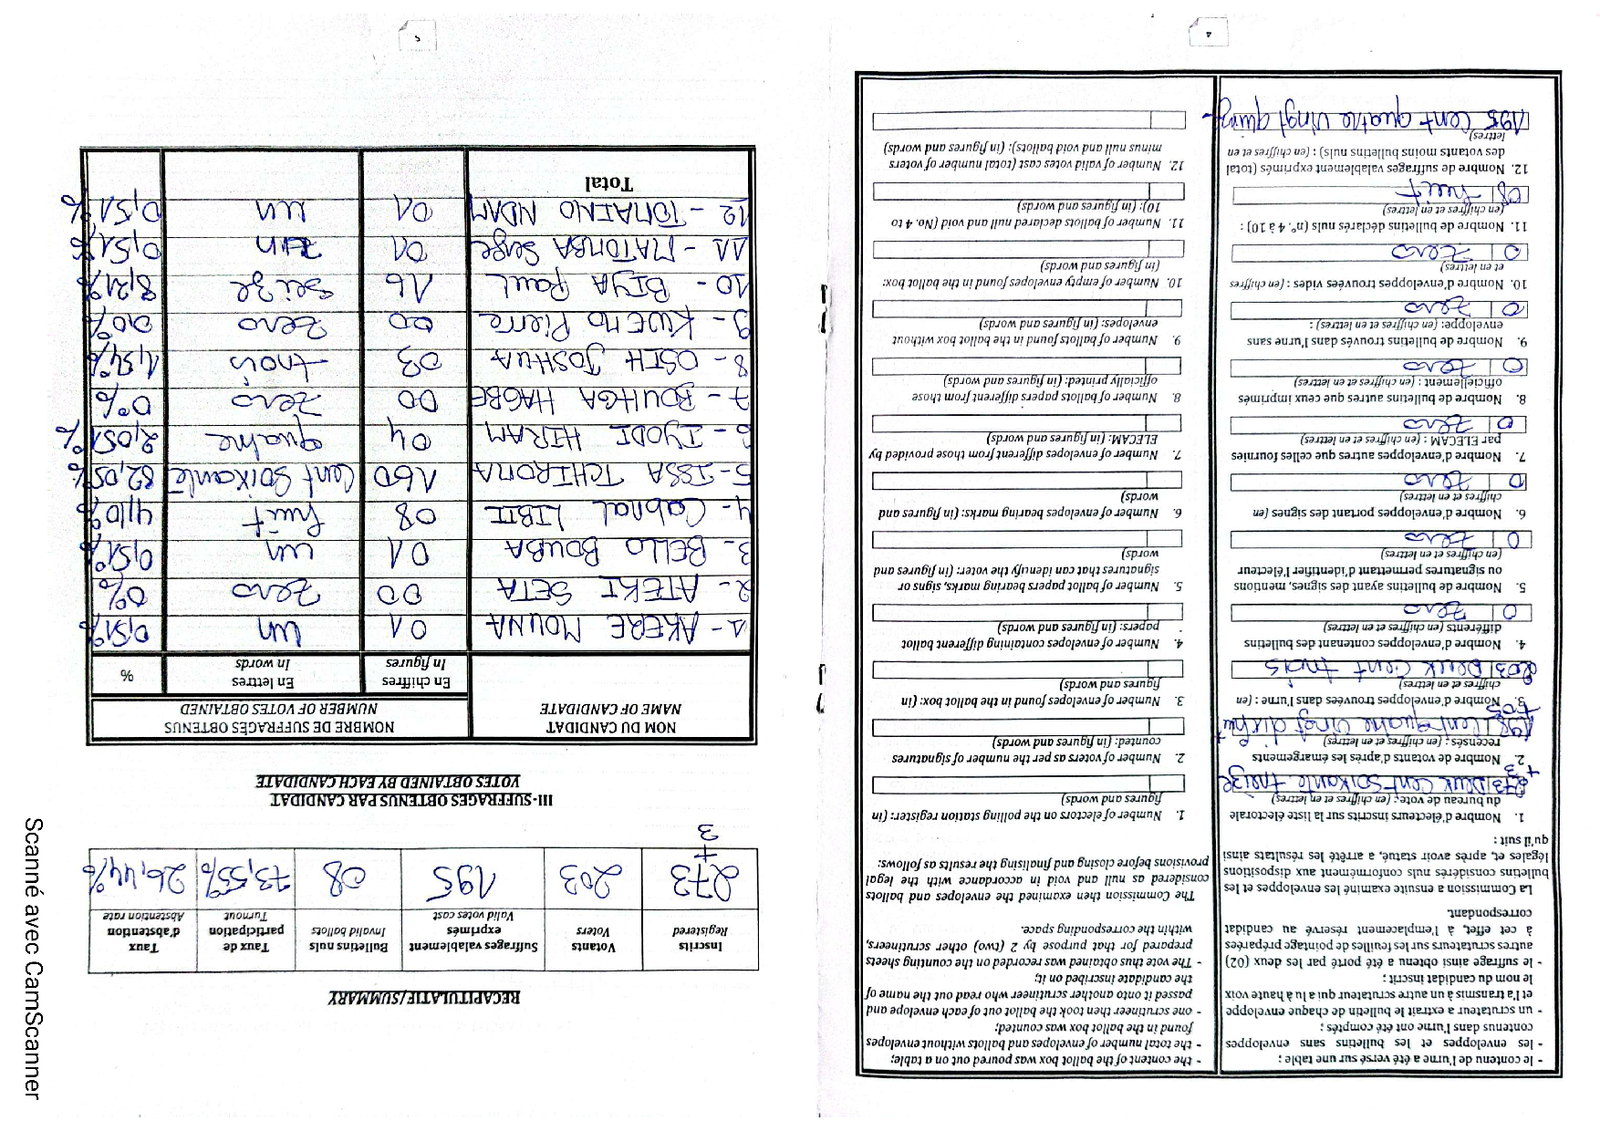 - le contenu de l'urne a été versé sur une table ;
- les enveloppes et les bulletins sans enveloppes
contenus dans l'urne ont été comptés ;
- un scrutateur a extrait le bulletin de chaque enveloppe
et l'a transmis à un autre scrutateur qui a lu à haute voix
le nom du candidat inscrit ;
- le suffrage ainsi obtenu a été porté par les deux (02)
autres scrutateurs sur les feuilles de pointage préparées
à cet effet, à l'emplacement réservé au candidat
correspondant.
La Commission a ensuite examiné les enveloppes et les
bulletins considérés nuls conformément aux dispositions
légales et, après avoir statué, a arrêté les résultats ainsi
qu'il suit :
1. Nombre d'électeurs inscrits sur la liste électorale
du bureau de vote : (en chiffres et en lettres)
273 Deux Cent Soixante treize
+3
2. Nombre de votants d'après les émargements
recensés : (en chiffres et en lettres)
198 Cent quatre vingt dix huit
+05
3. Nombre d'enveloppes trouvées dans l'urne : (en
chiffres et en lettres)
203 Deux Cent trois
4. Nombre d'enveloppes contenant des bulletins
différents (en chiffres et en lettres)
0 Zero
5. Nombre de bulletins ayant des signes, mentions
ou signatures permettant d'identifier l'électeur
(en chiffres et en lettres)
0 Zero
6. Nombre d'enveloppes portant des signes (en
chiffres et en lettres)
0 Zero
7. Nombre d'enveloppes autres que celles fournies
par ELECAM : (en chiffres et en lettres)
0 Zero
8. Nombre de bulletins autres que ceux imprimés
officiellement : (en chiffres et en lettres)
0 Zero
9. Nombre de bulletins trouvés dans l'urne sans
enveloppe: (en chiffres et en lettres) :
0 Zero
10. Nombre d'enveloppes trouvées vides : (en chiffres
et en lettres)
0 Zero
11. Nombre de bulletins déclarés nuls (n°. 4 à 10) :
(en chiffres et en lettres)
08 huit
12. Nombre de suffrages valablement exprimés (total
des votants moins bulletins nuls) : (en chiffres et en
lettres)
195 Cent quatre vingt quinz-
- the content of the ballot box was poured out on a table;
- the total number of envelopes and ballots without envelopes
found in the ballot box was counted;
- one scrutineer then took the ballot out of each envelope and
passed it onto another scrutineer who read out the name of
the candidate inscribed on it;
- The vote thus obtained was recorded on the counting sheets
prepared for that purpose by 2 (two) other scrutineers,
within the corresponding space.
The Commission then examined the envelopes and ballots
considered as null and void in accordance with the legal
provisions before closing and finalising the results as follows:
1. Number of electors on the polling station register: (in
figures and words)
2. Number of voters as per the number of signatures
counted: (in figures and words)
3. Number of envelopes found in the ballot box: (in
figures and words)
4. Number of envelopes containing different ballot
papers: (in figures and words)
5. Number of ballot papers bearing marks, signs or
signatures that can idenify the voter: (in figures and
words)
6. Number of envelopes bearing marks: (in figures and
words)
7. Number of envelopes different from those provided by
ELECAM: (in figures and words)
8. Number of ballots papers different from those
officially printed: (in figures and words)
9. Number of ballots found in the ballot box without
envelopes: (in figures and words)
10. Number of empty envelopes found in the ballot box:
(in figures and words)
11. Number of ballots declared null and void (No. 4 to
10): (in figures and words)
12. Number of valid votes cast (total number of voters
minus null and void ballots): (in figures and words)
4
RECAPITULATIF/SUMMARY
Inscrits Registered
Votants Voters
Suffrages valablement exprimés Valid votes cast
Bulletins nuls Invalid ballots
Taux de participation Turnout
Taux d'abstention Abstention rate
273 +3 203 195 08 73,55% 26,44%
III- SUFFRAGES OBTENUS PAR CANDIDAT
VOTES OBTAINED BY EACH CANDIDATE
NOM DU CANDIDAT
NAME OF CANDIDATE
NOMBRE DE SUFFRAGES OBTENUS
NUMBER OF VOTES OBTAINED
En chiffres In figures
En lettres In words
%
1- AKERE MOUNA 01 un 0,51%
2- ATEKI SETA 00 Zero 0%
3- BELLO BOUBA 01 un 0,51%
4- Cabral LIBII 08 huit 4,10%
5- ISSA TCHIROMA 160 Cent Soixante 82,05%
6- IYODI HIRAM 04 quatre 2,051%
7- BOUHGA HAGBE 00 Zero 0%
8- OSIH JOSHUA 03 trois 1,54%
9- KWEMO Pierre 00 Zero 0,0%
10- BIYA Paul 16 Seize 8,21%
11- MATOMBA Serge 01 un 0,51%
12- TOMAINO NDAM 01 un 0,51%
Total
5
Scanné avec CamScanner